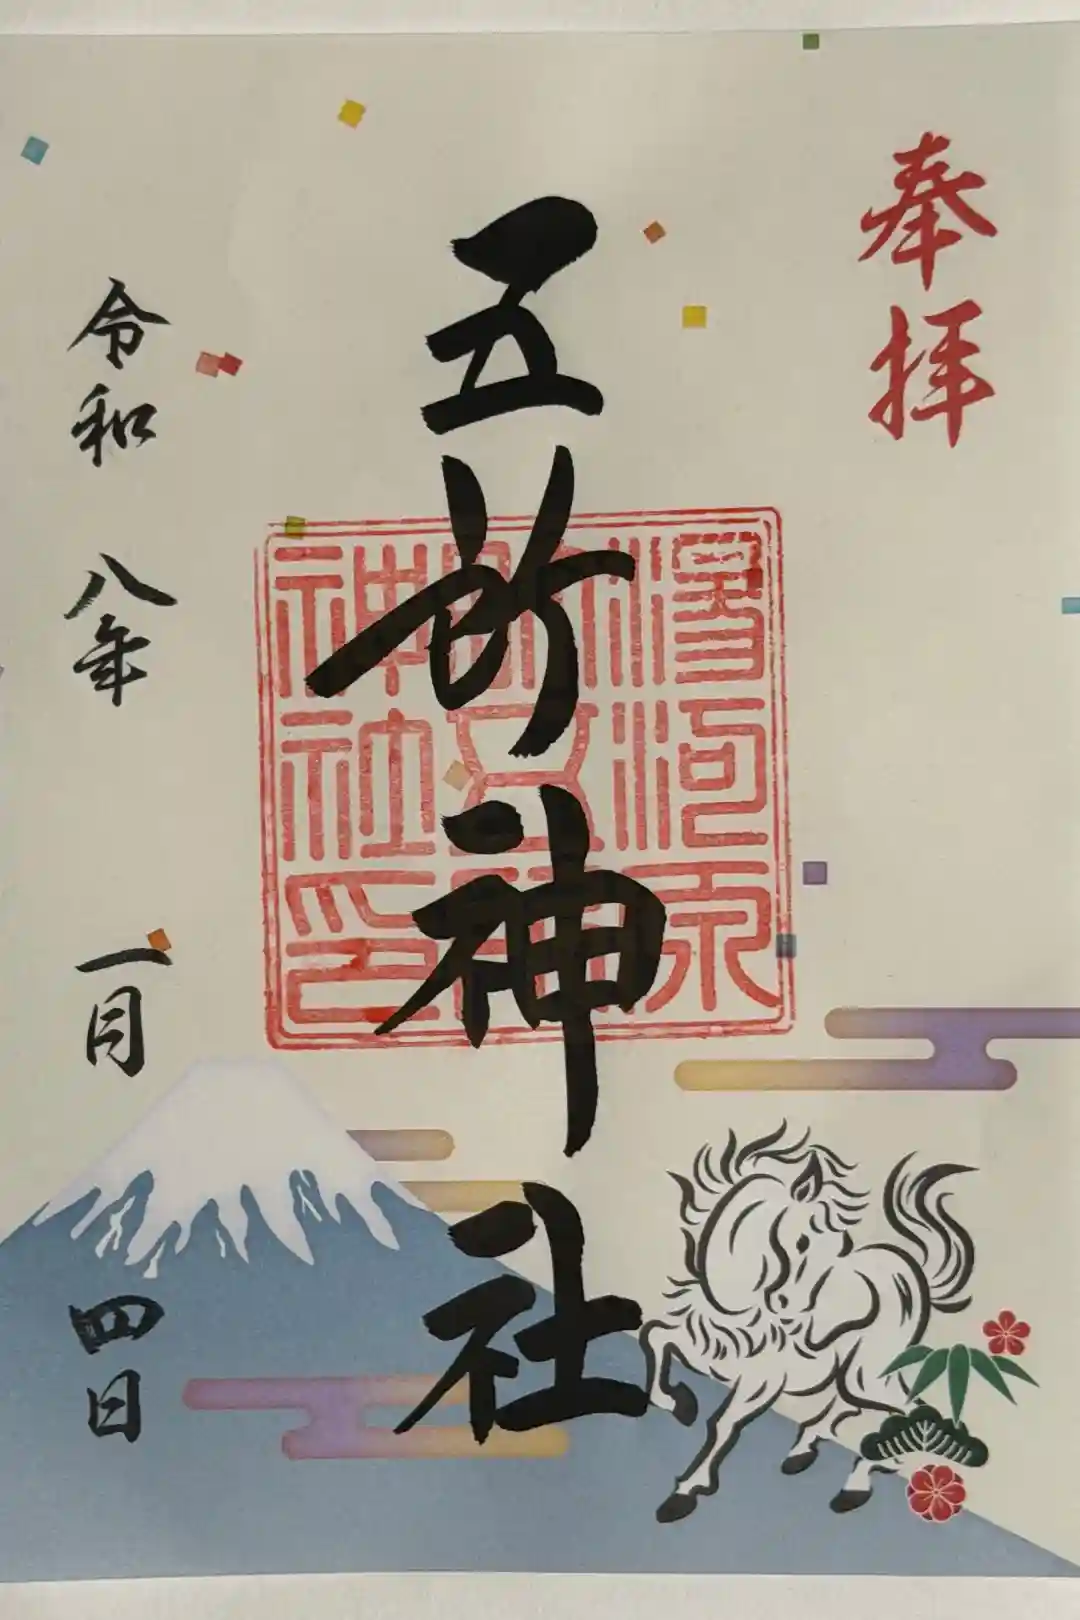 奉拝
五所神社
湯河原
神社印
令和八年一月四日